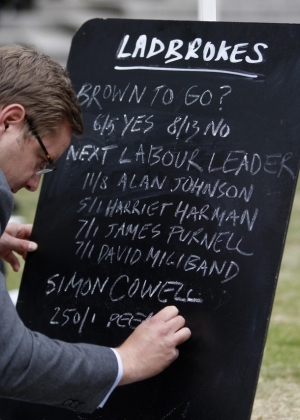 LADBROKES
BROWN TO GO?
6/5 YES 8/13 NO
NEXT LABOUR LEADER
11/8 ALAN JOHNSON
5/1 HARRIET HARMAN
7/1 JAMES PURNELL
7/1 DAVID MILIBAND
SIMON COWELL
250/1 PEE